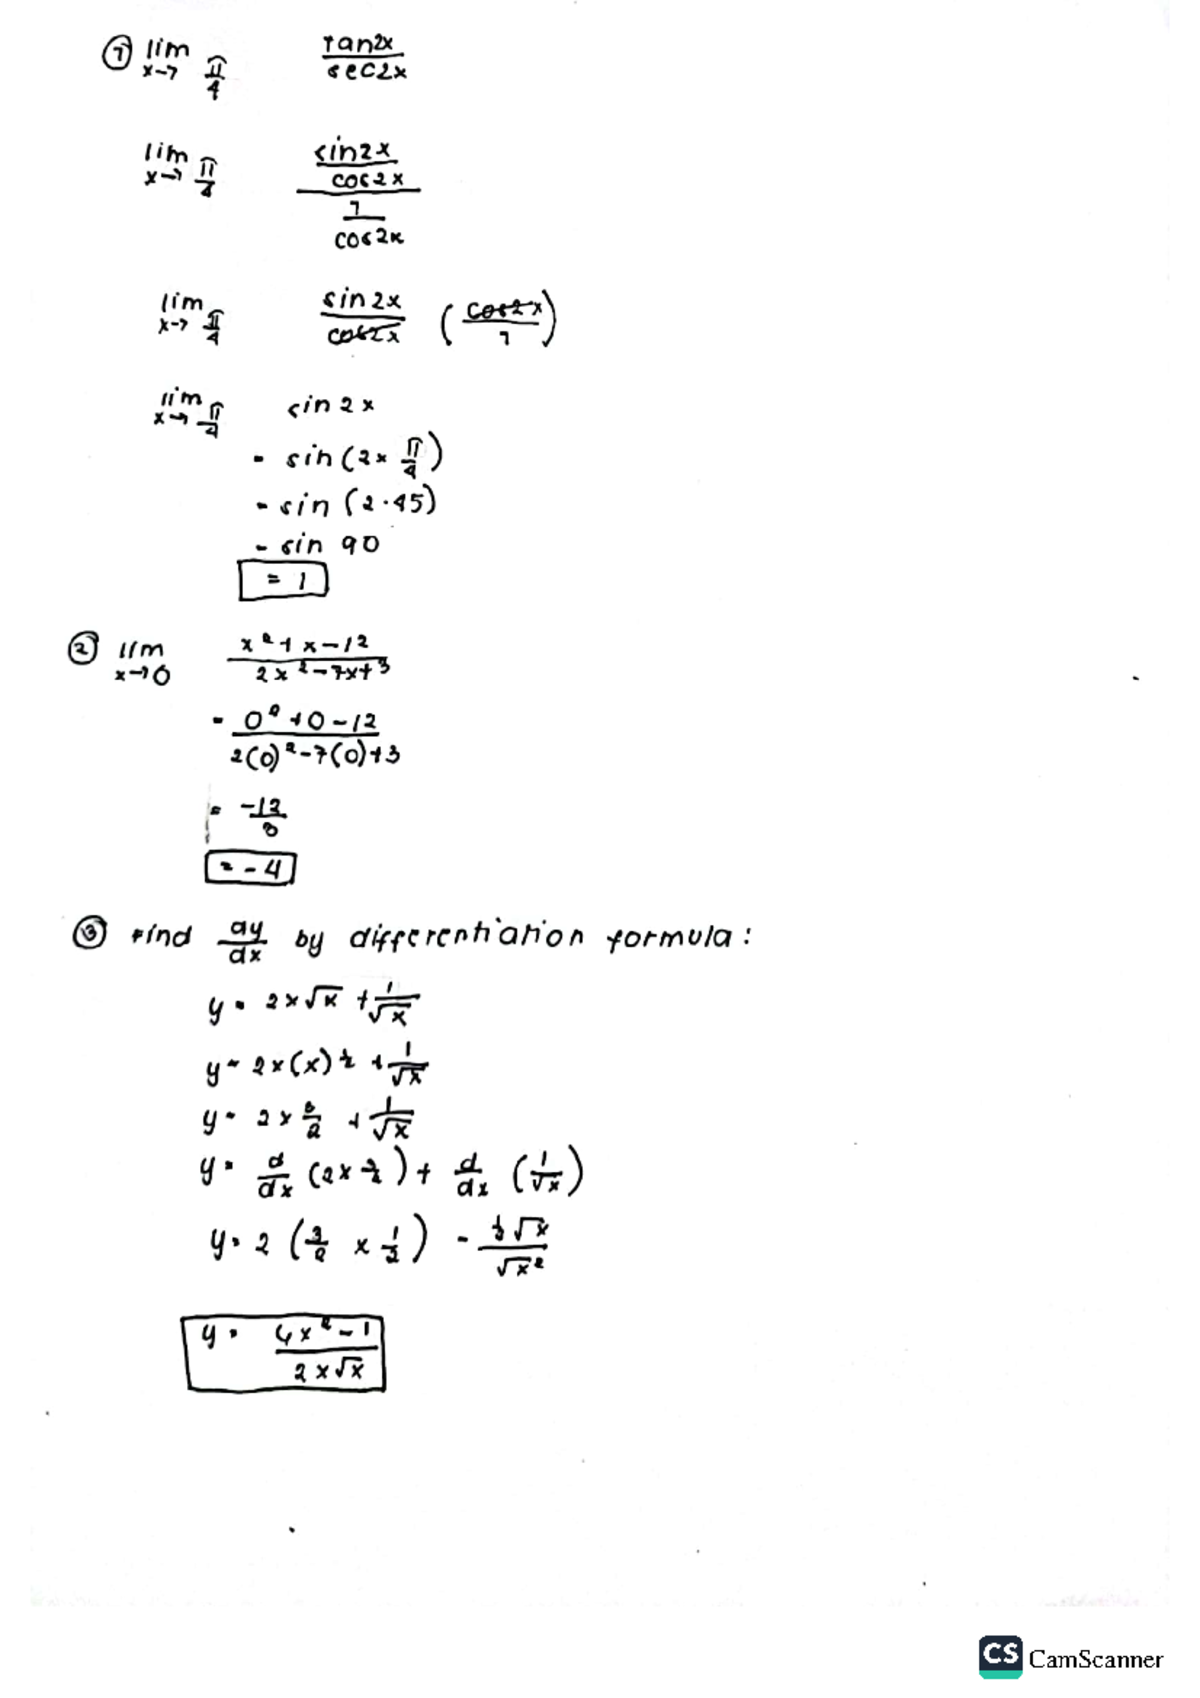 ① lim x→π/4 tan2x / sec2x
lim x→π/4 (sin2x / cos2x) / (1 / cos2x)
lim x→π/4 sin2x / cos2x (cos2x / 1)
lim x→π/4 sin2x
= sin(2x π/4)
= sin (2·45)
= sin 90
= 1
② lim x→0 x²+x-12 / 2x²-7x+3
= 0²+0-12 / 2(0)²-7(0)+3
= -12/3
= -4
③ Find dy/dx by differentiation formula:
y = 2x√x + 1/√x
y = 2x(x)½ + 1/√x
y = 2x 3/2 + 1/√x
y = d/dx (2x 3/2) + d/dx (1/√x)
y = 2 (3/2 x 1/2) - ½√x / √x²
y = 6x²-1 / 2x√x
CS CamScanner